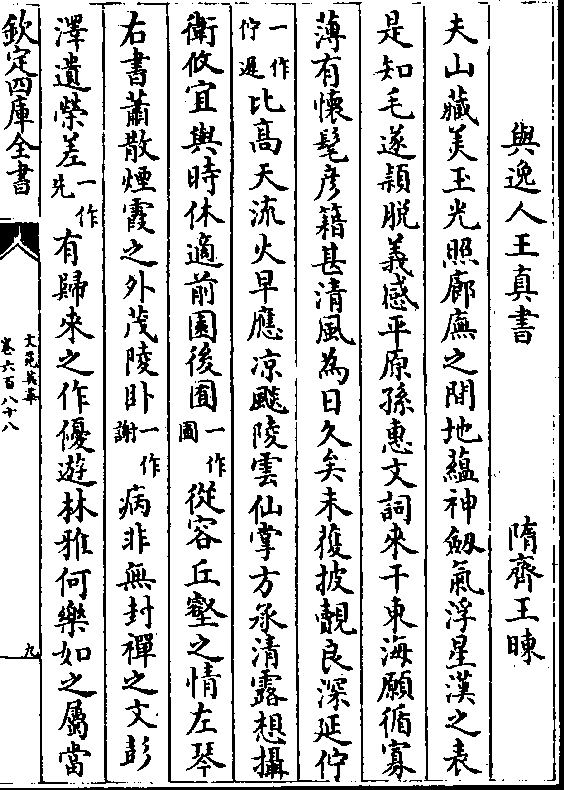 與逸人王真書　隋齊王暕
夫山藏美玉光照廊廡之間地蘊神劔氣浮星漢之表
是知毛遂頴脱義感平原孫惠文詞來干東海願循寡
薄有懷髦彦籍甚清風為日久矣未復披覿良深延佇
一作佇遲比高天流火早應凉飈陵雲仙掌方承清露想攝
衛攸宜與時休適前園後圃一作圖從容丘壑之情左琴
右書蕭散煙霞之外茂陵卧一作謝病非無封禪之文彭
澤遺榮差一作先有歸來之作優遊林雅何樂如之屬當
欽定四庫全書
文苑英華
卷六百八十八
九